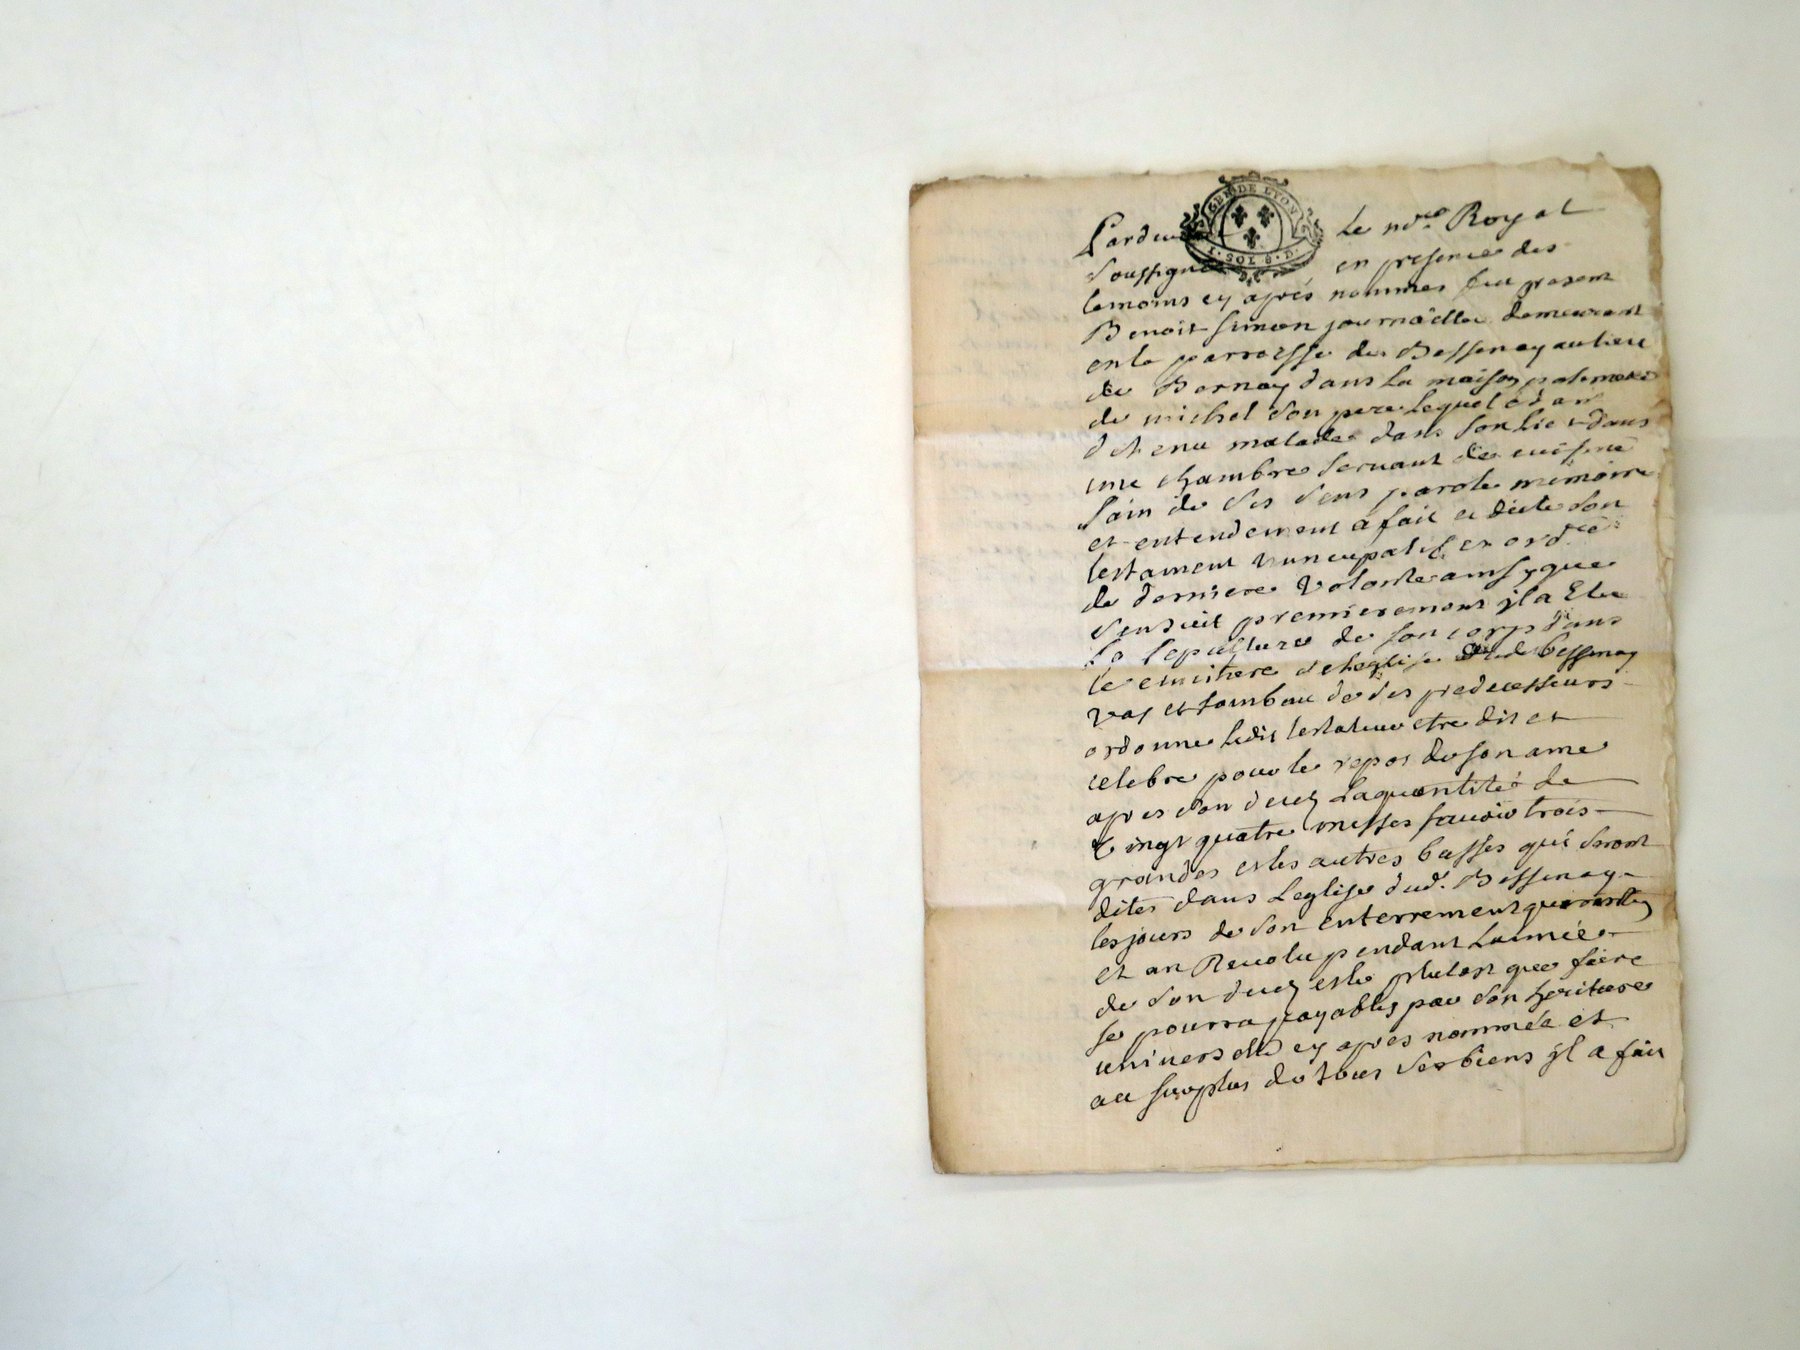 GEN DE LYON
1 · SOL 8 · D
Pardevant Le no.re Royal
soussigné en presence des
temoins cy après nommes fut present
Benoit Simeon journailler demeurant
en la parroisse de Bessenay au lieu
de Bernay dans la maison paternelle
de michel son pere lequel etant
detenu malade dans son lict dans
une chambre servant de cuisine
sain de ses sens parole memoire
et entendement a fait et dicté son
testament nuncupatif et ord.ce
de derniere volonté ainsy que
sensuit premierement jl a Elu
la sepulture de son corps dans
le cimitiere de leglise dud bessenay
vas et tombau de ses predecesseurs
ordonne ledit testateur etre dit et
celebre pour le repos de son ame
apres son decez la quantité de
vingt quatre messes savoir trois
grandes et les autres basses qui seront
dites dans Leglise dud. Bessenay
les jours de son enterrement quarantin
et an Revolu pendant Lannée
de son decez et le plutost que faire
se pourra payables par son heritiere
universelle cy apres nommée et
au surplus de tous ses biens jl a fait